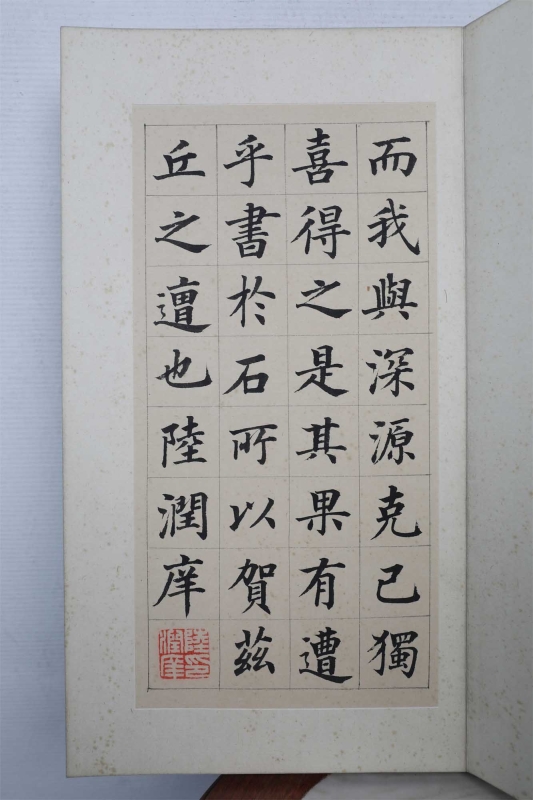 而我與深源克己獨
喜得之是其果有遭
乎書於石所以賀茲
丘之遭也陸潤庠
陸印潤庠